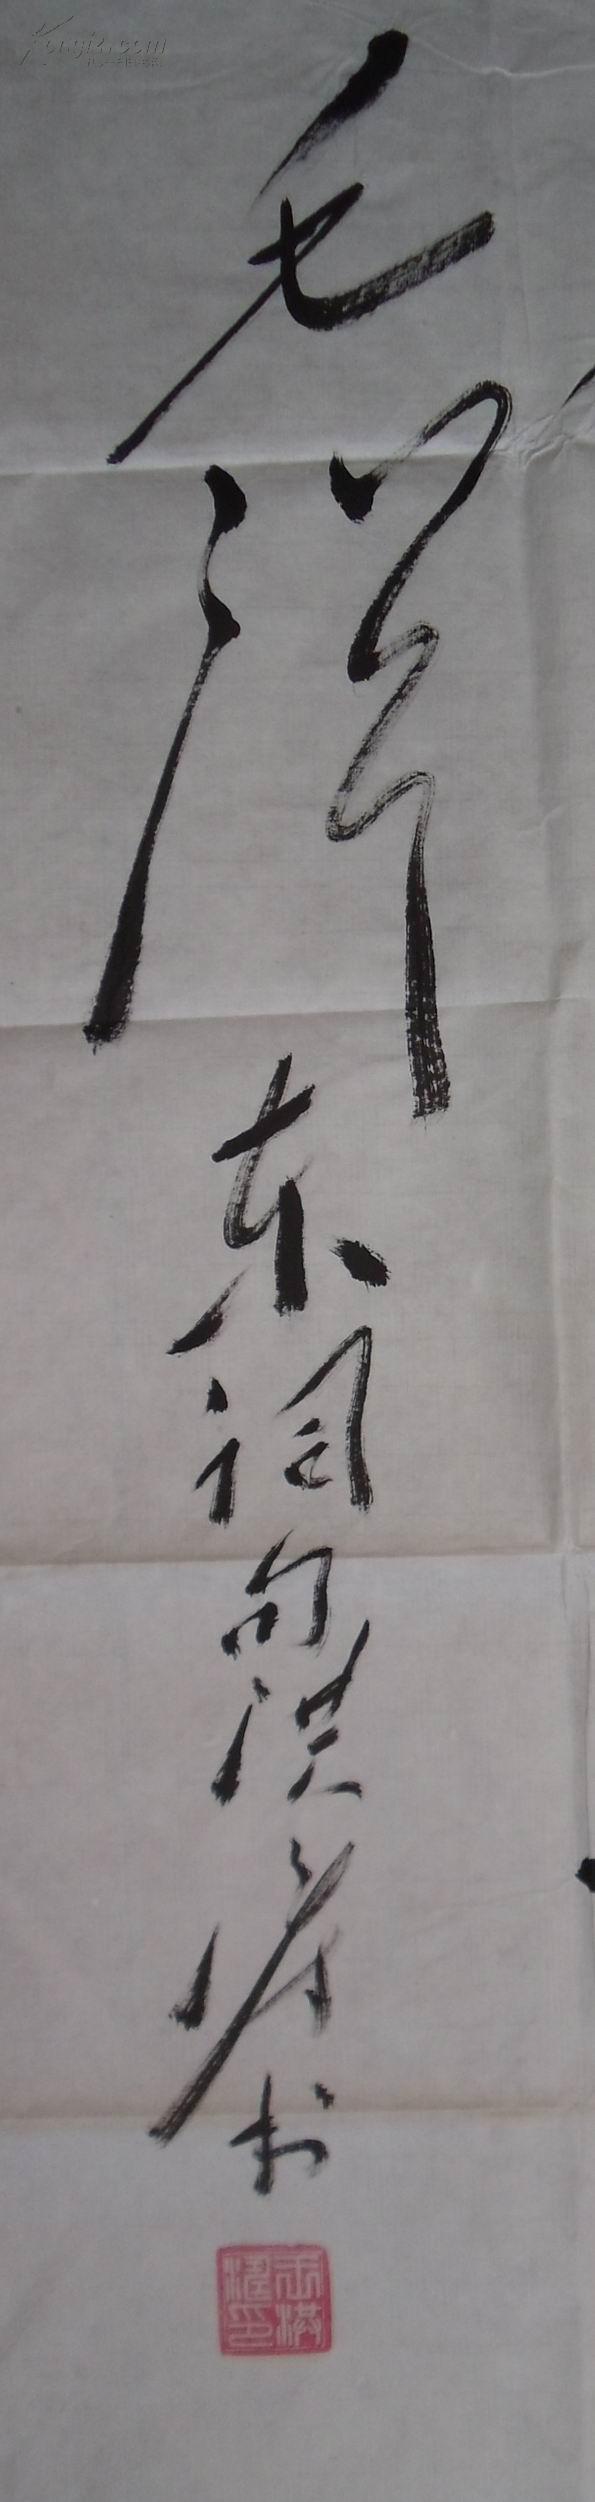 Kongfz.com
毛泽东词句洪泽书